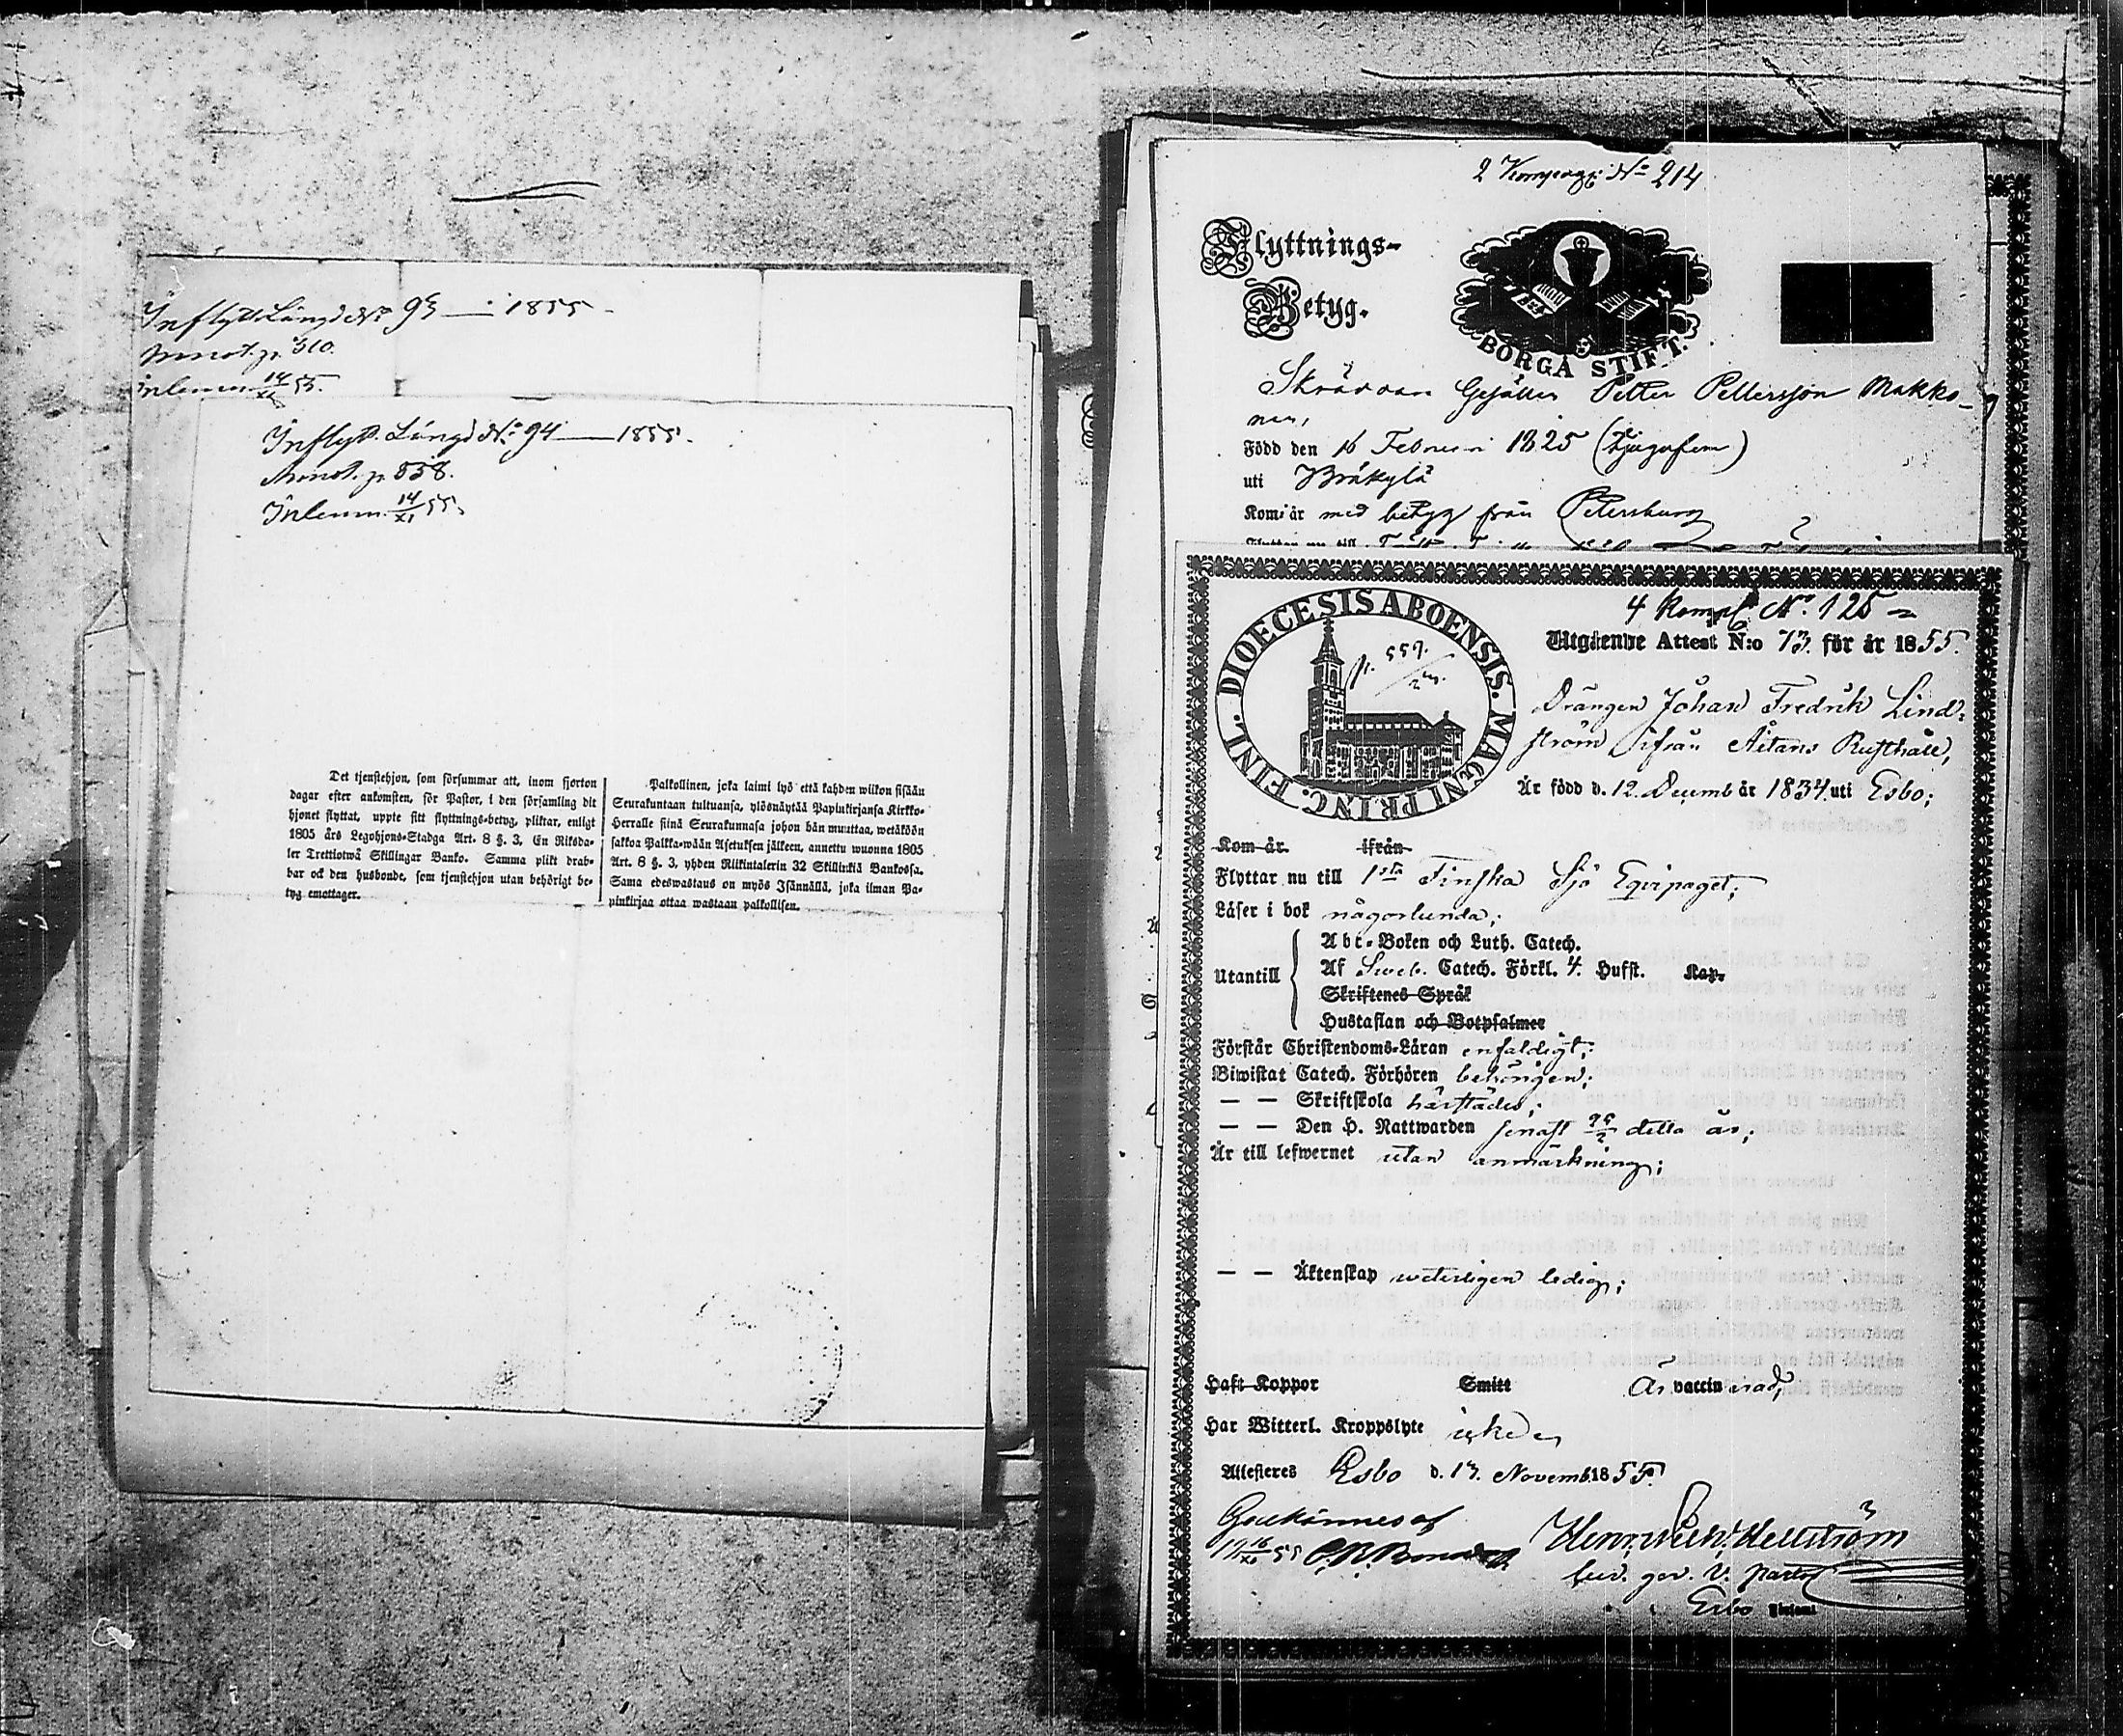 Inflytt. Längd No 93 — 1855.
Annot. p. 310.
Inlemn. 14/XI 55.
Inflytt. Längd No 94 — 1855.
Annot. p. 538.
Inlemn. 14/XI 55.
Det tjenstehjon, som försummar att, inom fjorton
dagar efter ankomsten, för Pastor, i den församling dit
hjonet flyttat, uppte sitt flyttnings-betyg, pliktar, enligt
1805 års Legohjons-Stadga Art. 8 §. 3, En Riksda-
ler Trettiotwå Skillingar Banko. Samma plikt drab-
bar ock den husbonde, som tjenstehjon utan behörigt be-
tyg emottager.
Palkollinen, joka laimi lyö että kahden wiikon sisään
Seurakuntaan tultuansa, ylösnäytää Papinkirjansa Kirkko-
Herralle siinä Seurakunnasa johon hän muuttaa, wetäköön
sakkoa Palkka-wään Asetuksen jälkeen, annettu wuonna 1805
Art. 8 §. 3, yhden Riikintalerin 32 Skillinkiä Bankossa.
Sama edeswastaus on myös Isännällä, joka ilman Pa-
pinkirjaa ottaa wastaan palkollisen.
2 Kompagi: No 214
Flyttnings-
Betyg.
BORGÅ STIFT.
Skräddare Gesällen Petter Pettersson Makko-
nen,
Född den 16 Februari 1825 (tjugufem)
uti Bräkylä
Kom år med betyg från Petersburg
Flyttar nu till
4 Komp. No. 125
DIOECESIS ABOENSIS. MAGNI PRINC. FINL.
p. 559.
Utgående Attest N:o 73. för år 1855.
Drängen Johan Fredrik Lind-
ström ifrån Åitans Rusthåll,
Är född d. 12. Decemb år 1834. uti Esbo;
Kom år. ifrån
Flyttar nu till 1sta Finska Sjö Eqvipaget;
Läser i bok någorlunda;
Utantill
Abc-Boken och Luth. Catech.
Af Sveb. Catech. Förkl. 4. Hufst. Kap.
Skriftenes Språk
Hustaflan och Botpsalmer
Förstår Christendoms-Läran enfaldigt;
Biwistat Catech. Förhören behörigen;
— — Skriftskola härstädes;
— — Den H. Nattwarden senast detta år;
Är till lefwernet utan anmärkning;
— — Äktenskap veterligen ledig;
Haft Koppor Smitt Är vaccinerad,
Har Witterl. Kroppslyte icke
Attesteres Esbo d. 13. Novemb. 1855.
Godkännes af
Henr. Wilh. Hellström
V. Pastor
Esbo